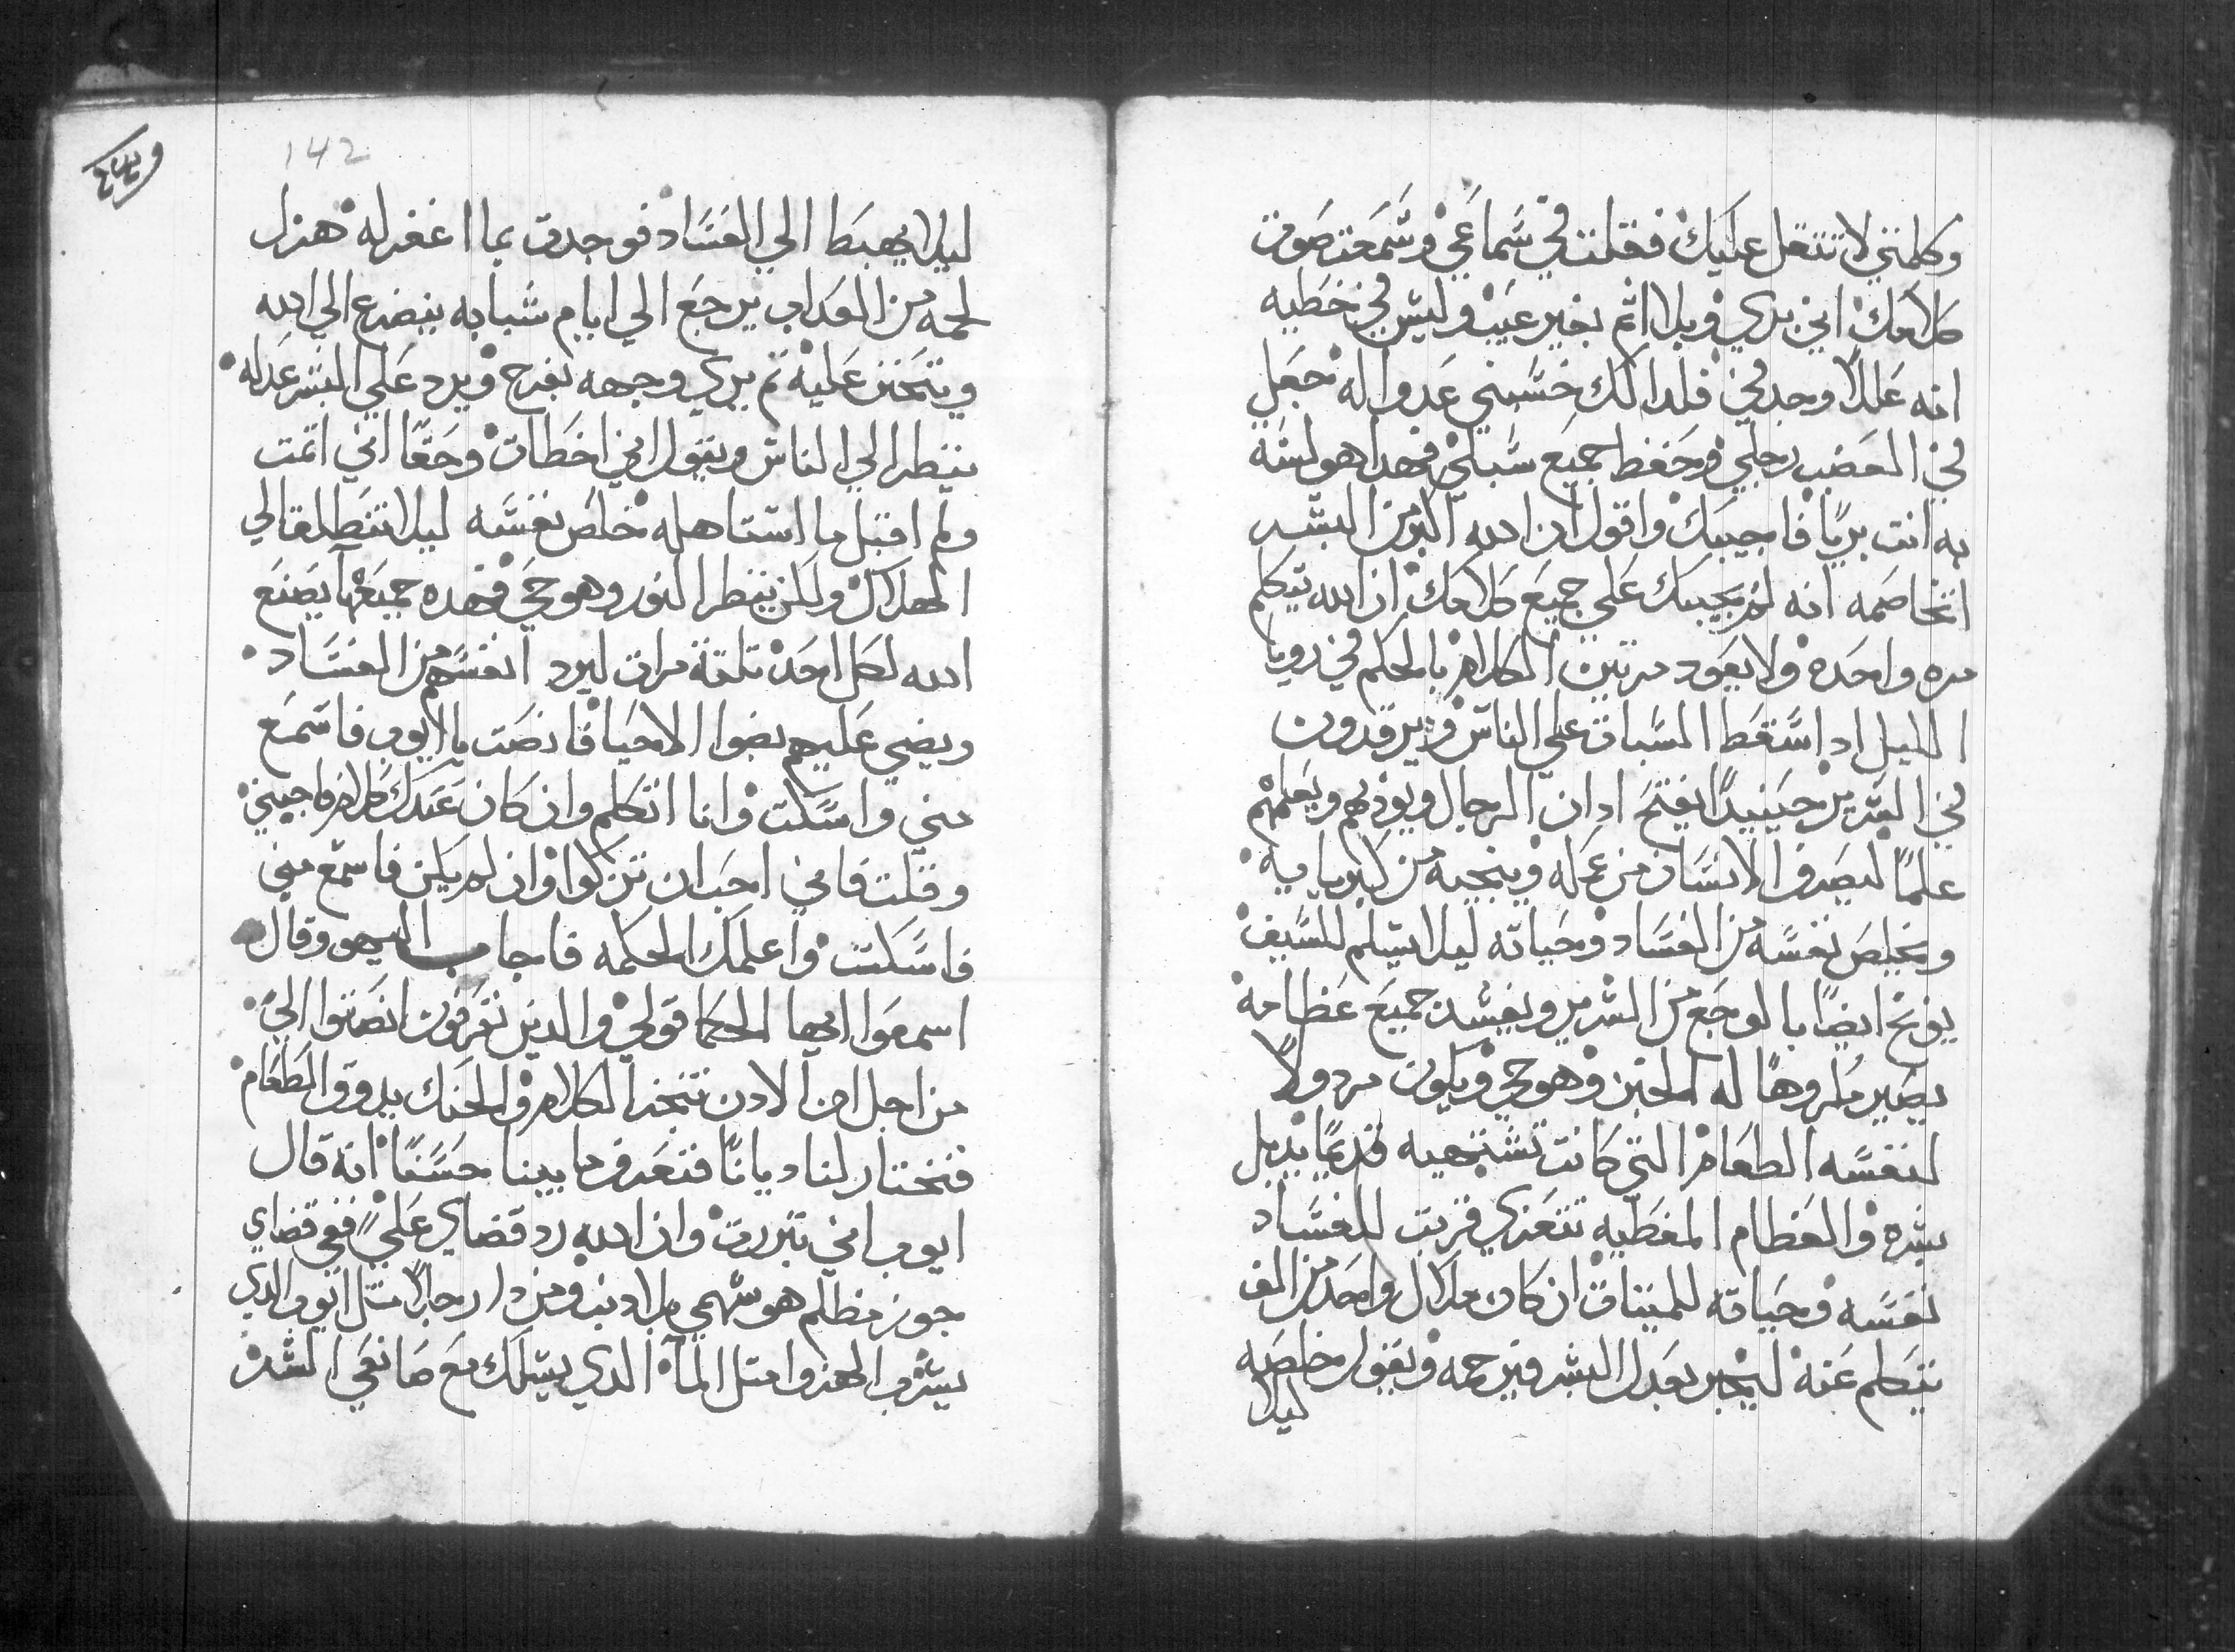 وكلمتي لا تتقل عليك فقلت في سماعي وسمعت صوت
كلامك اني بري وبلا اثم بغير عيب وليس لي خطيه
انه عللاً وجد لي فلدالك حسبني عدوا له جعل
في الخضب رجلي وحفظ جميع سبلي فهدا هو لسته
به انت برياً فاجيبك واقول ان الله اكبر من البشر
اتخاصمه انه لم يجيبك علي جميع كلامك ان الله يتكلم
مره واحده ولا يعود مرتين الكلام بالحكم في رويا
الليل اد اسقط السبات علي الناس ويرقدون
في السرير حينيداً يفتح ادان الرجال ويودبهم ويعلمهم
علماً ليصرف الانسان من عمله وينجيه من كبريايه
ويخلص نفسه من الفساد وحياته ليلا يسلم للسيف
يوبخ ايضاً بالوجع من السرير ويفسد جميع عظامه
يصير مكروهاً له الخبز وهو حي ويكون مردولاً
لنفسه الطعام التي كانت تشتهيه قديماً يدبل
بشره والعظام المغطيه تتعري قربت للفساد
نفسه وحياته للميتات ان كان ملاك واحد من الف
يتكلم عنه ليخبر بعدل البشر فيرحمه ويقول مخلصه
ليلا
142
ليلا يهبط الي الفساد فوجدت بما اغفر له هزل
لحمه من العداب يرجع الي ايام شبابه يتضرع الي الله
ويتحنن عليه ثم يري وجهه بفرح ويرد علي البشر عدله
ينظر الي الناس ويقول اني اخطات وحقاً اني اتمت
ولم اقبل ما استاهله خلص نفسه ليلا تنطلق الي
الهلاك ولكن ينظر النور وهو حي فهده جميعها يصنع
الله لكل احد تلتة مرات ليرد انفسهم من الفساد
ويضي عليهم بضوا الاحيا فانصت يا ايوب فاسمع
مني واسكت وانا اتكلم وان كان عندك كلام فاجبني
وقلت فاني احب ان تزكوا وان لم يكن فاسمع مني
فاسكت واعلمك الحكمه فاجاب اليهو وقال
اسمعوا ايها الحكما قولي والدين تعرفون انصتوا الي
من اجل ان الادن تتمحن الكلام والحنك يدوق الطعام
فنختار لنا دياناً فنعرف ما بيننا حسناً انه قال
ايوب اني تبررت وان الله رد قضاي علي ففي قضاي
جوز مظلم هو سهمي بلا دنب ومن دا رجلاً متل ايوب الدي
يشرب الهزوا متل المآ الدي يسلك مع صانعي الشر